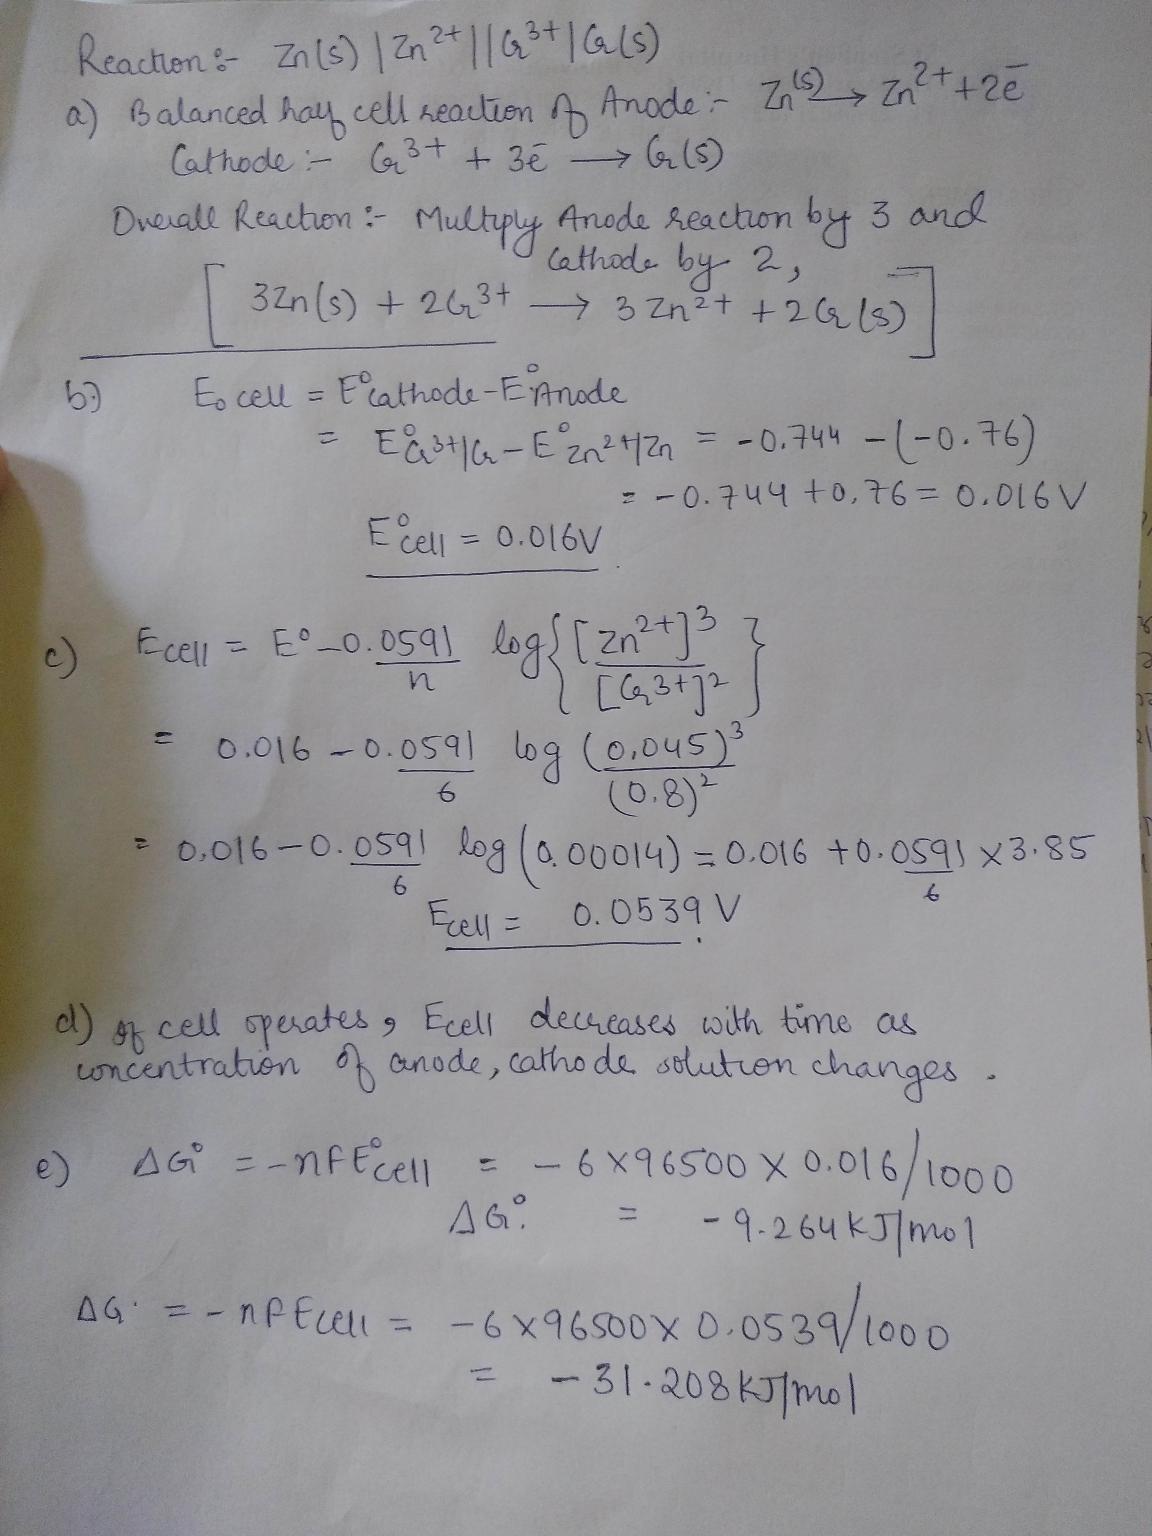 Reaction :- Zn(s) | Zn²⁺ || Cr³⁺ | Cr(s)
a) Balanced half cell reaction of Anode :- Zn(s) → Zn²⁺ + 2e̅
Cathode :- Cr³⁺ + 3e̅ → Cr(s)
Overall Reaction :- Multiply Anode reaction by 3 and
Cathode by 2,
[ 3Zn(s) + 2Cr³⁺ → 3Zn²⁺ + 2Cr(s) ]
b) E₀ cell = E°Cathode - E°Anode
= E°Cr³⁺/Cr - E°Zn²⁺/Zn = -0.744 - (-0.76)
= -0.744 + 0.76 = 0.016 V
E°cell = 0.016V
c) Ecell = E° - 0.0591/n log{[Zn²⁺]³/[Cr³⁺]²}
= 0.016 - 0.0591/6 log (0.045)³/(0.8)²
= 0.016 - 0.0591/6 log(0.00014) = 0.016 + 0.0591/6 × 3.85
Ecell = 0.0539 V
d) If cell operates, Ecell decreases with time as
concentration of anode, cathode solution changes.
e) ΔG° = -nFE°cell = -6×96500×0.016/1000
ΔG° = -9.264 kJ/mol
ΔG = -nFEcell = -6×96500×0.0539/1000
= -31.208 kJ/mol